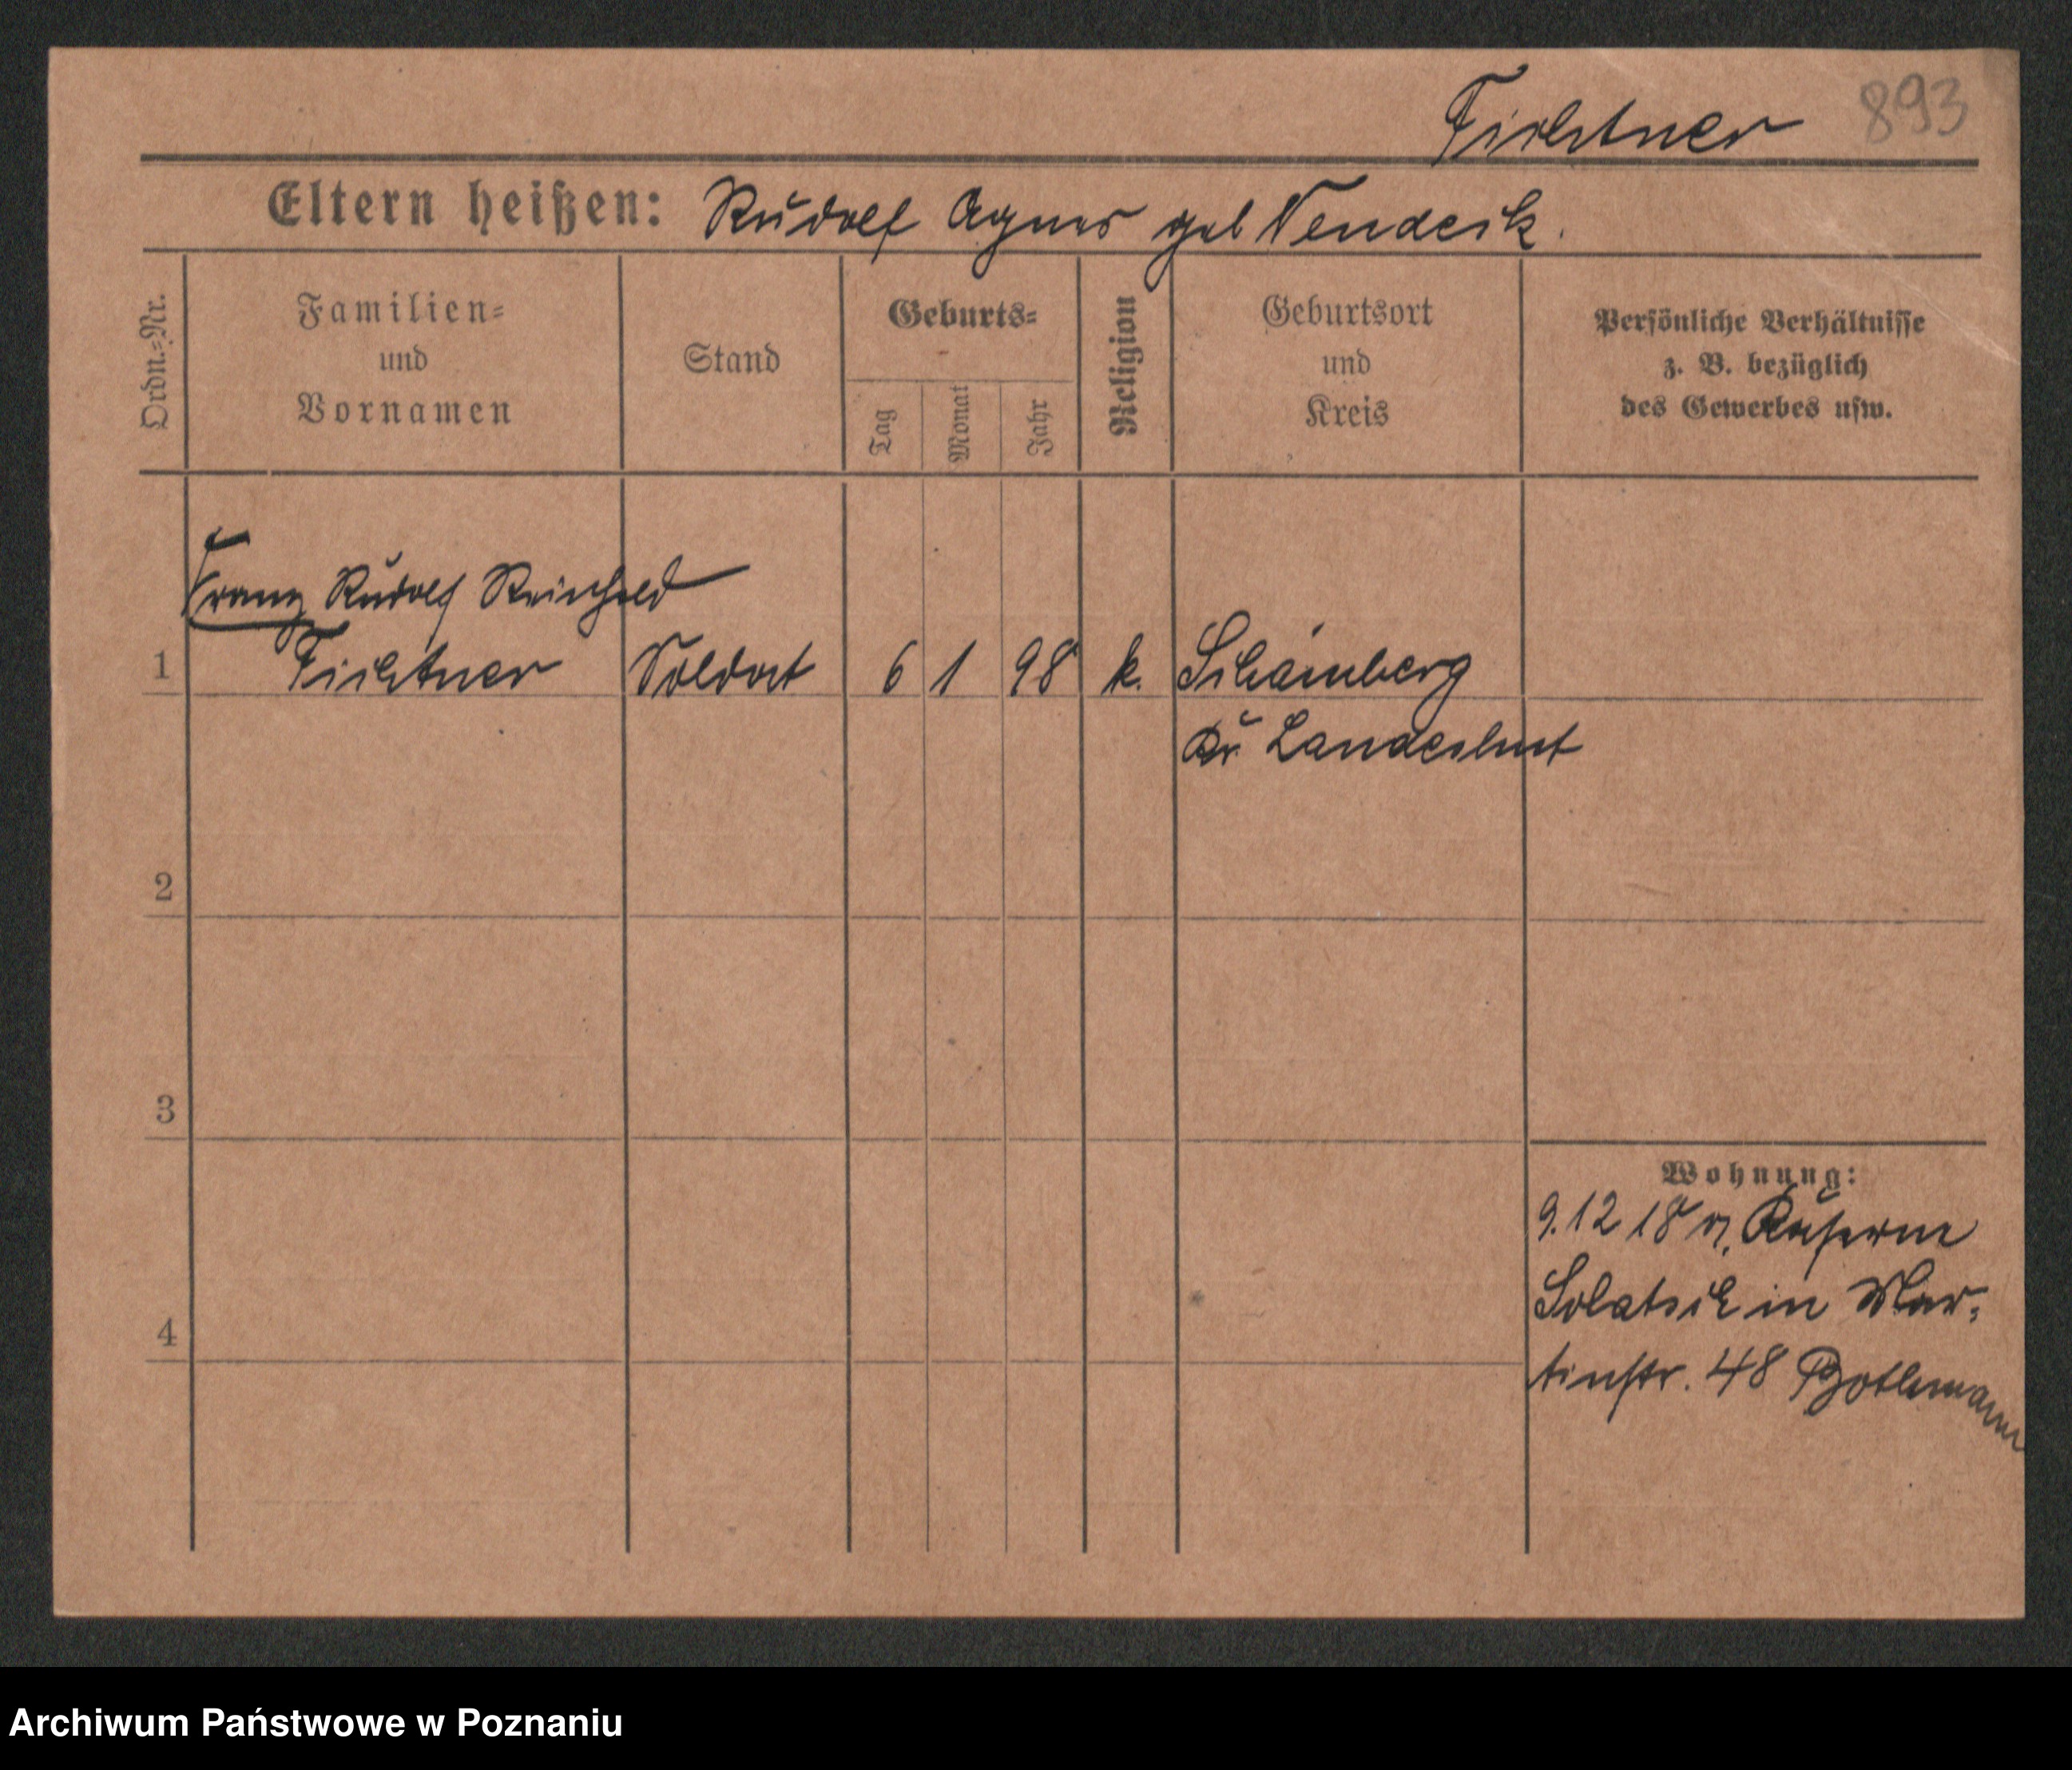 Fichtner 893
Eltern heißen: Rudolf Agnes geb Nendeck.
Ordn.-Nr.
Familien-
und
Vornamen
Stand
Geburts-
Tag
Monat
Jahr
Religion
Geburtsort
und
Kreis
Persönliche Verhältnisse
z. B. bezüglich
des Gewerbes usw.
Franz Rudolf Reinhold
1 Fichtner Soldat 6 1 98 k. Schämberg
Kr. Landeshut
2
3
4
Wohnung:
9.12 18 v. Kaserne
in Mar-
tinstr. 48 Bothmann
Archiwum Państwowe w Poznaniu